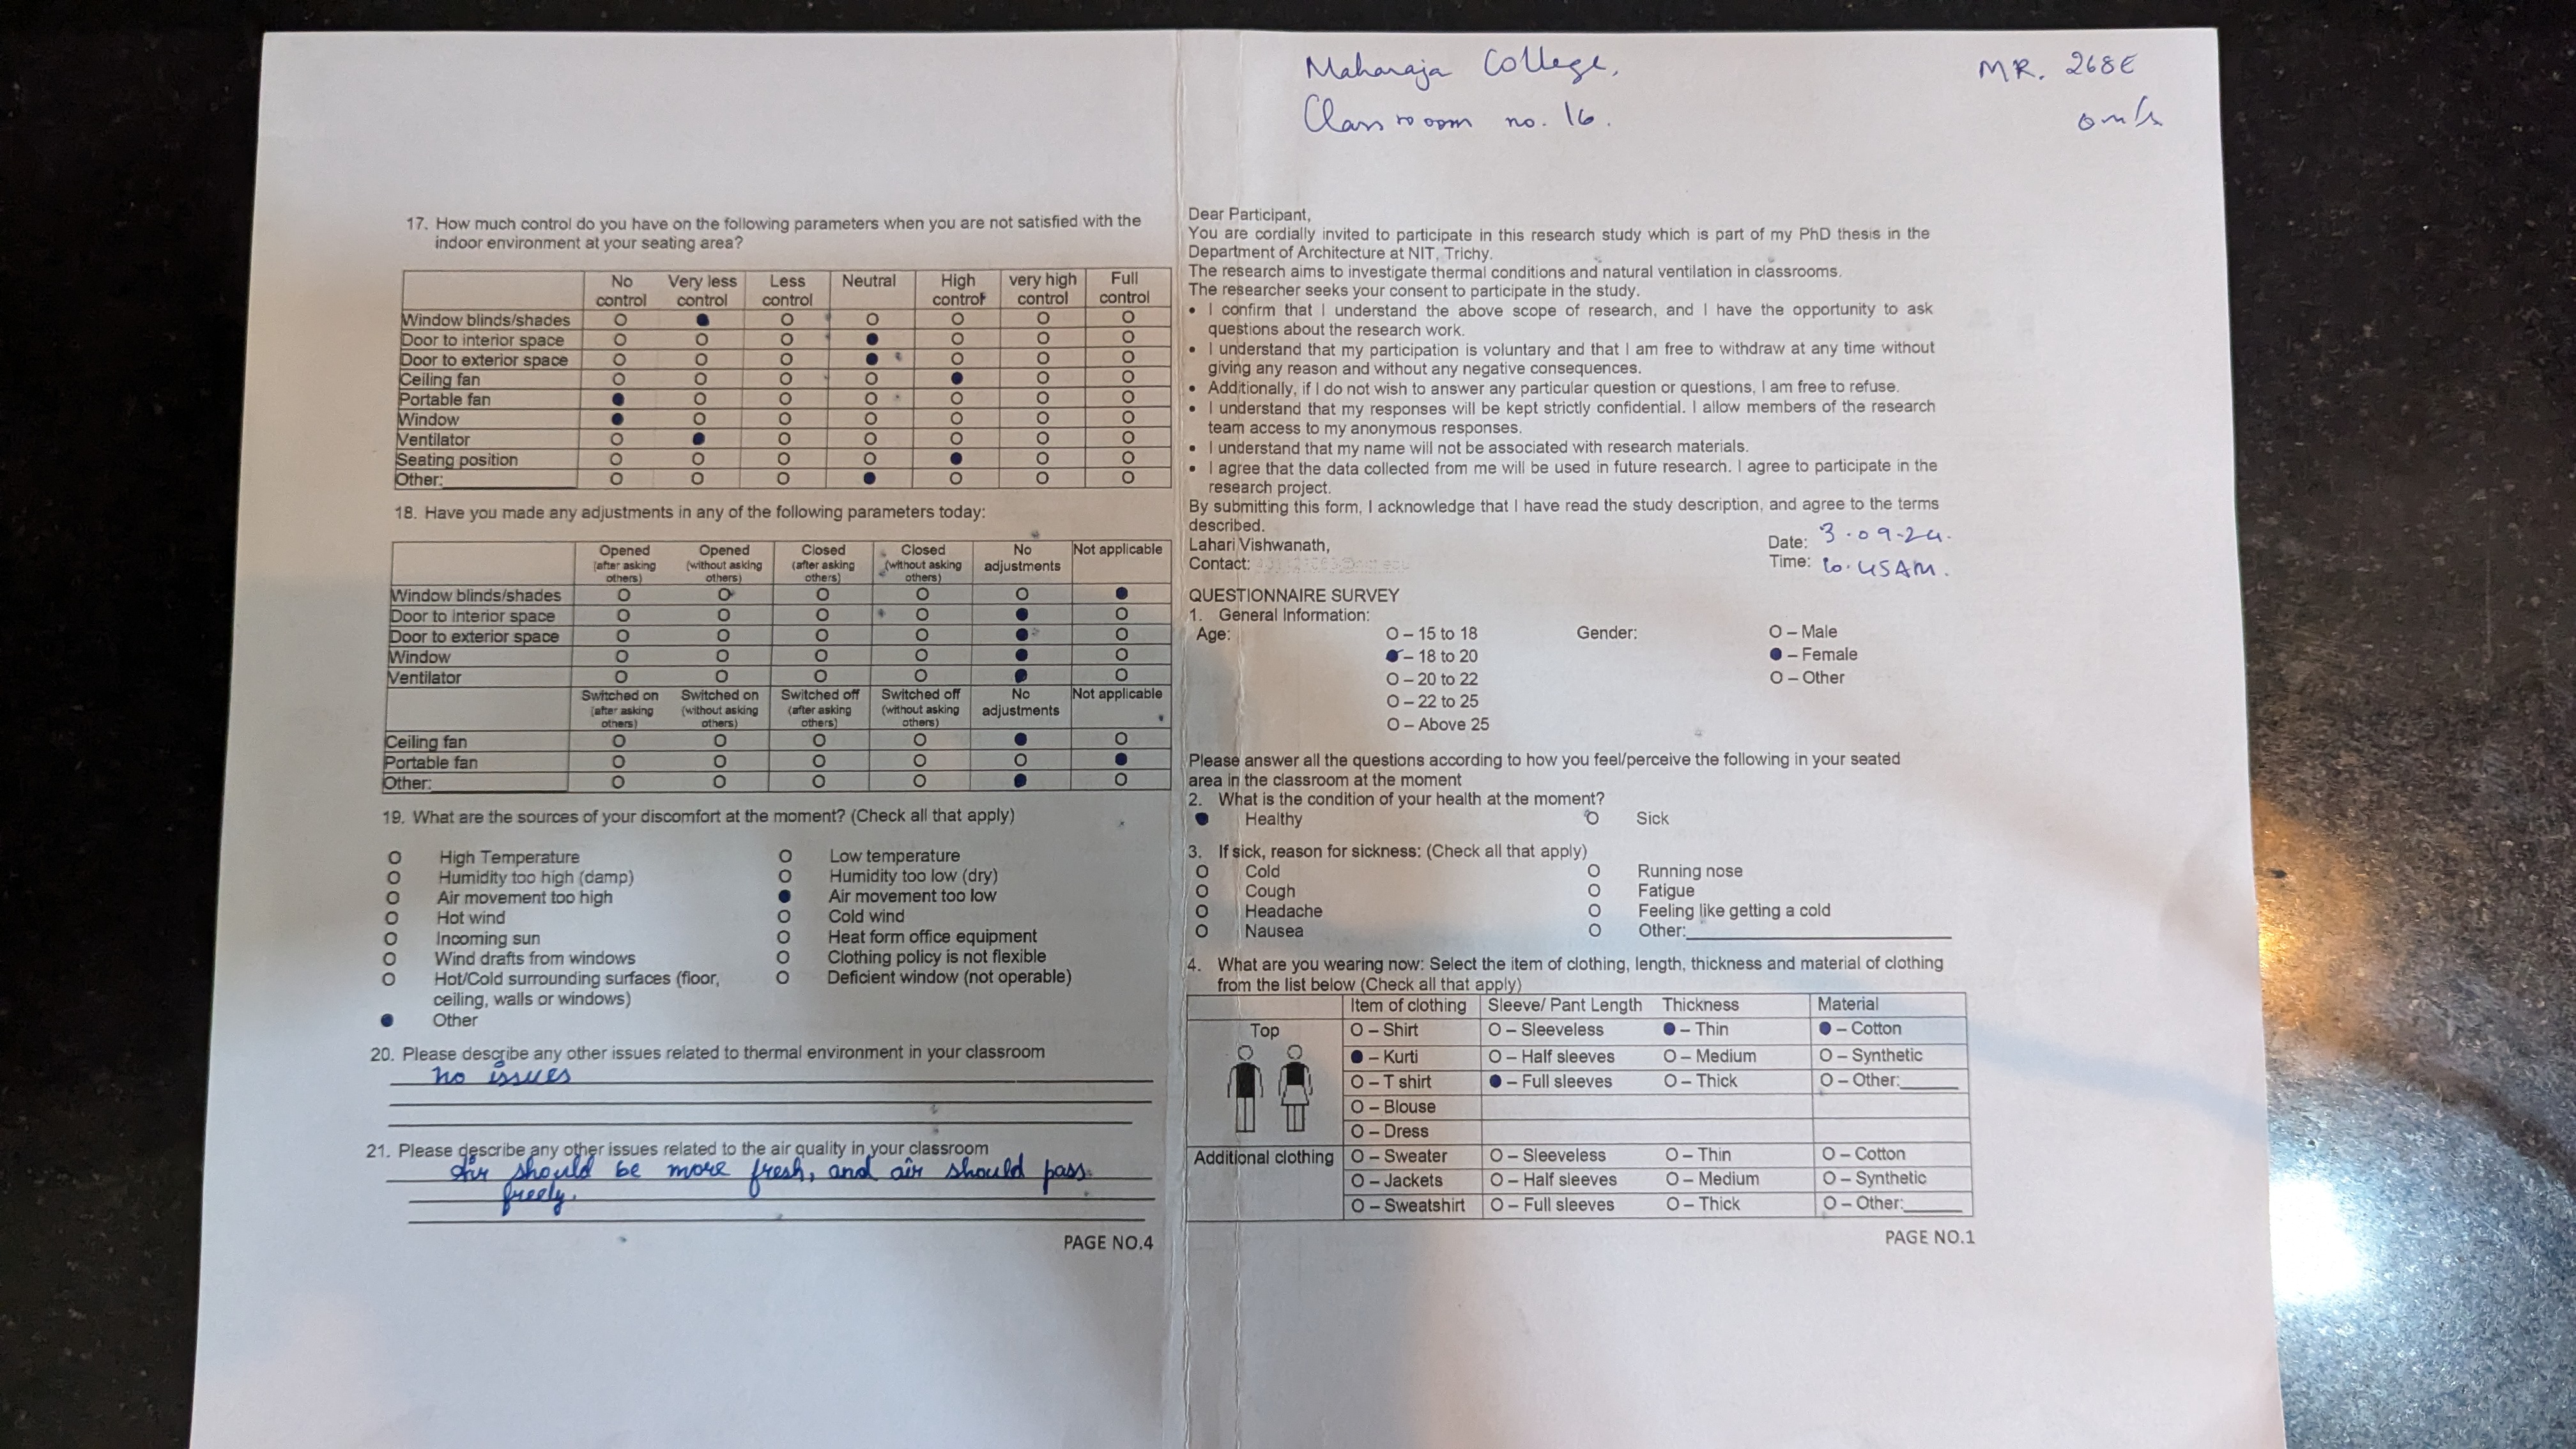 17. How much control do you have on the following parameters when you are not satisfied with the
indoor environment at your seating area?
No control Very less control Less control Neutral High control very high control Full control
Window blinds/shades O ● O O O O O
Door to interior space O O O ● O O O
Door to exterior space O O O ● O O O
Ceiling fan O O O O ● O O
Portable fan ● O O O O O O
Window ● O O O O O O
Ventilator O ● O O O O O
Seating position O O O O ● O O
Other:________ O O O ● O O O
18. Have you made any adjustments in any of the following parameters today:
Opened (after asking others) Opened (without asking others) Closed (after asking others) Closed (without asking others) No adjustments Not applicable
Window blinds/shades O O O O O ●
Door to interior space O O O O ● O
Door to exterior space O O O O ● O
Window O O O O ● O
Ventilator O O O O ● O
Switched on (after asking others) Switched on (without asking others) Switched off (after asking others) Switched off (without asking others) No adjustments Not applicable
Ceiling fan O O O O ● O
Portable fan O O O O O ●
Other:________ O O O O ● O
19. What are the sources of your discomfort at the moment? (Check all that apply)
O High Temperature O Low temperature
O Humidity too high (damp) O Humidity too low (dry)
O Air movement too high ● Air movement too low
O Hot wind O Cold wind
O Incoming sun O Heat form office equipment
O Wind drafts from windows O Clothing policy is not flexible
O Hot/Cold surrounding surfaces (floor, O Deficient window (not operable)
ceiling, walls or windows)
● Other
20. Please describe any other issues related to thermal environment in your classroom
no issues
21. Please describe any other issues related to the air quality in your classroom
Air should be more fresh, and air should pass
freely.
PAGE NO.4
Maharaja College,
Classrooom no. 16.
MR. 268E
0 m/s
Dear Participant,
You are cordially invited to participate in this research study which is part of my PhD thesis in the
Department of Architecture at NIT, Trichy.
The research aims to investigate thermal conditions and natural ventilation in classrooms.
The researcher seeks your consent to participate in the study.
• I confirm that I understand the above scope of research, and I have the opportunity to ask
questions about the research work.
• I understand that my participation is voluntary and that I am free to withdraw at any time without
giving any reason and without any negative consequences.
• Additionally, if I do not wish to answer any particular question or questions, I am free to refuse.
• I understand that my responses will be kept strictly confidential. I allow members of the research
team access to my anonymous responses.
• I understand that my name will not be associated with research materials.
• I agree that the data collected from me will be used in future research. I agree to participate in the
research project.
By submitting this form, I acknowledge that I have read the study description, and agree to the terms
described.
Lahari Vishwanath,
Contact:
Date: 3.09.24.
Time: 10.45AM.
QUESTIONNAIRE SURVEY
1. General Information:
Age: O – 15 to 18 Gender: O – Male
● – 18 to 20 ● – Female
O – 20 to 22 O – Other
O – 22 to 25
O – Above 25
Please answer all the questions according to how you feel/perceive the following in your seated
area in the classroom at the moment
2. What is the condition of your health at the moment?
● Healthy O Sick
3. If sick, reason for sickness: (Check all that apply)
O Cold O Running nose
O Cough O Fatigue
O Headache O Feeling like getting a cold
O Nausea O Other:________
4. What are you wearing now: Select the item of clothing, length, thickness and material of clothing
from the list below (Check all that apply)
Item of clothing Sleeve/ Pant Length Thickness Material
Top O – Shirt O – Sleeveless ● – Thin ● – Cotton
● – Kurti O – Half sleeves O – Medium O – Synthetic
O – T shirt ● – Full sleeves O – Thick O – Other:______
O – Blouse
O – Dress
Additional clothing O – Sweater O – Sleeveless O – Thin O – Cotton
O – Jackets O – Half sleeves O – Medium O – Synthetic
O – Sweatshirt O – Full sleeves O – Thick O – Other:______
PAGE NO.1